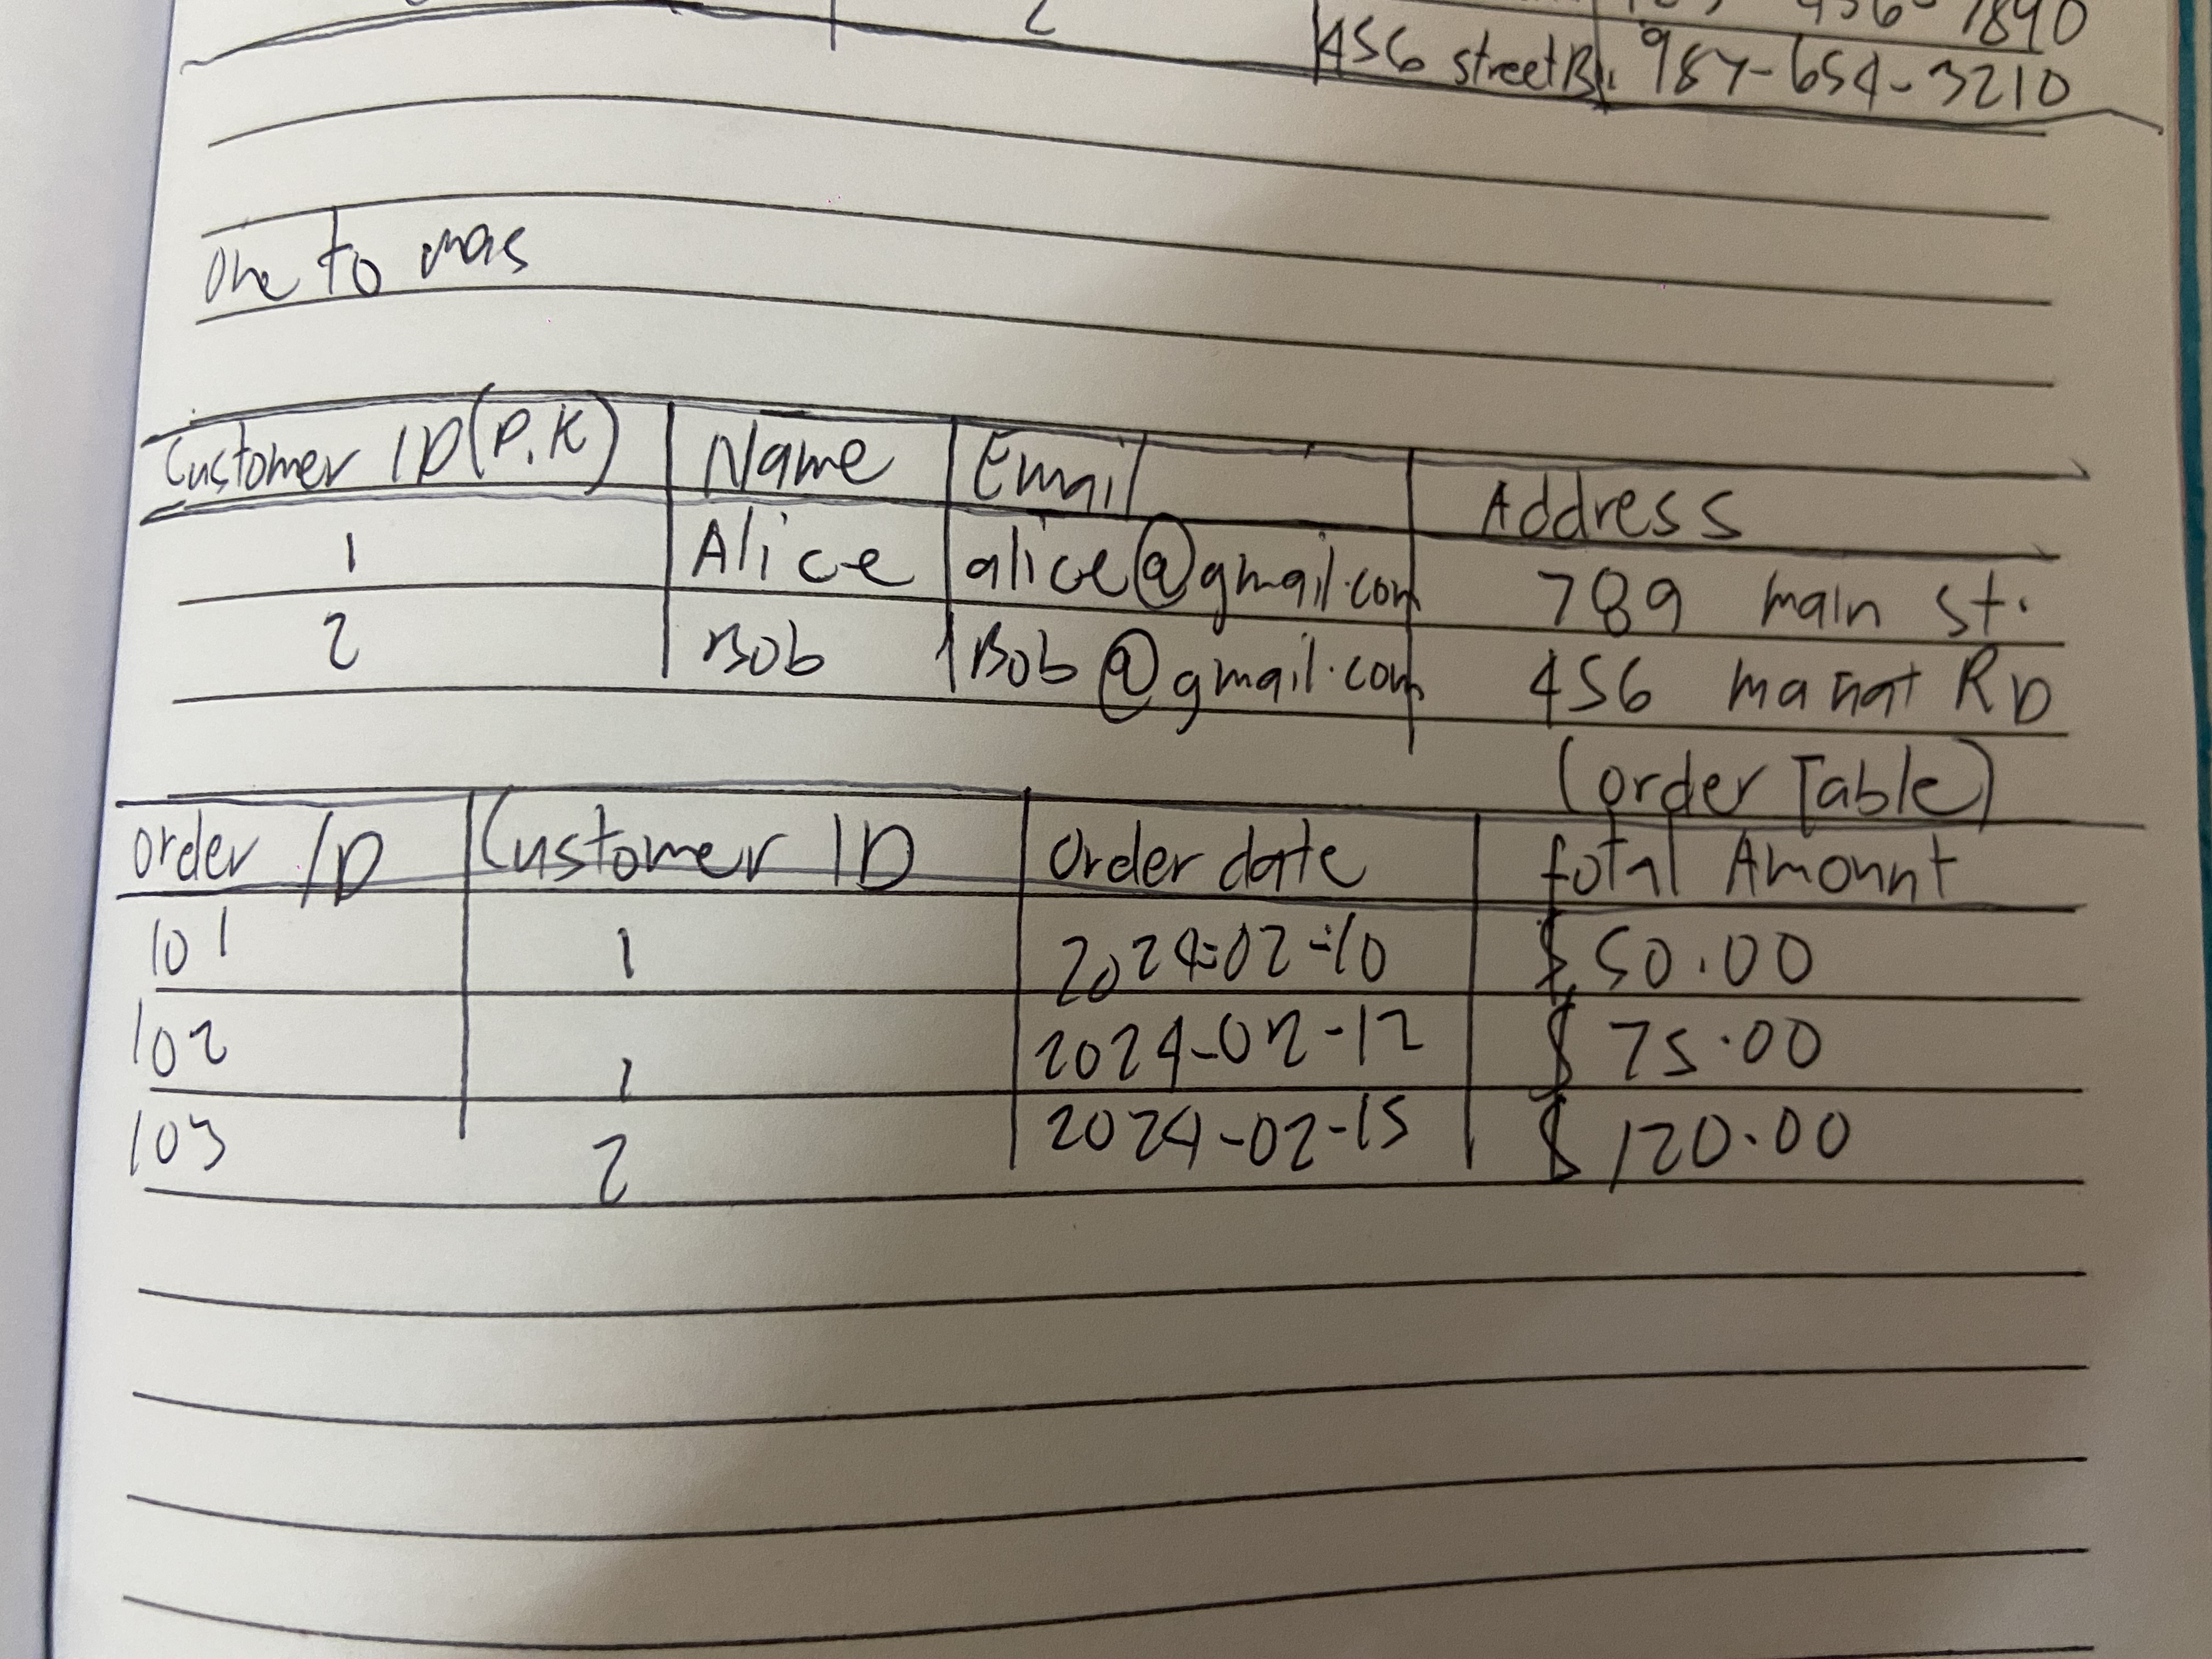 2
456 street Rd. 987-654-3210
One to mas
Customer ID (P.K) Name Email Address
1 Alice alice@gmail.com 789 main st.
2 Bob Bob@gmail.com 456 Rd
(order Table)
order ID Customer ID order date total Amount
101 1 2024-02-10 $ 50.00
102 1 2024-02-12 $ 75.00
103 2 2024-02-15 $ 120.00